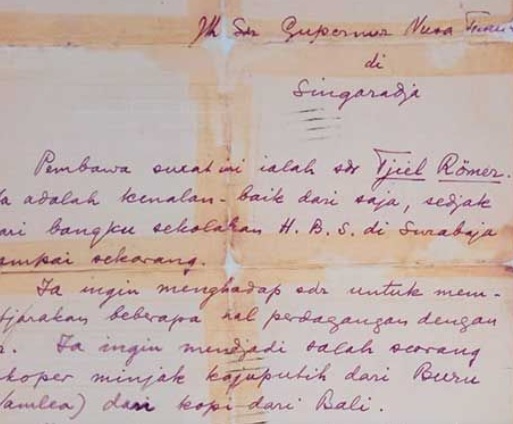 Jh Sdr Gupernur Nusa
di
Singaradja
Pembawa surat ini ialah sdr Tjiel Römer.
Ia adalah kenalan-baik dari saja, sedjak
ari bangku sekolahan H.B.S. di Surabaja
ampai sekarang.
Ia ingin menghadap sdr untuk mem-
tjarakan beberapa hal perdagangan dengan
Ia ingin mendjadi salah seorang
koper minjak kajuputih dari Buru
amlea) dan kopi dari Bali.